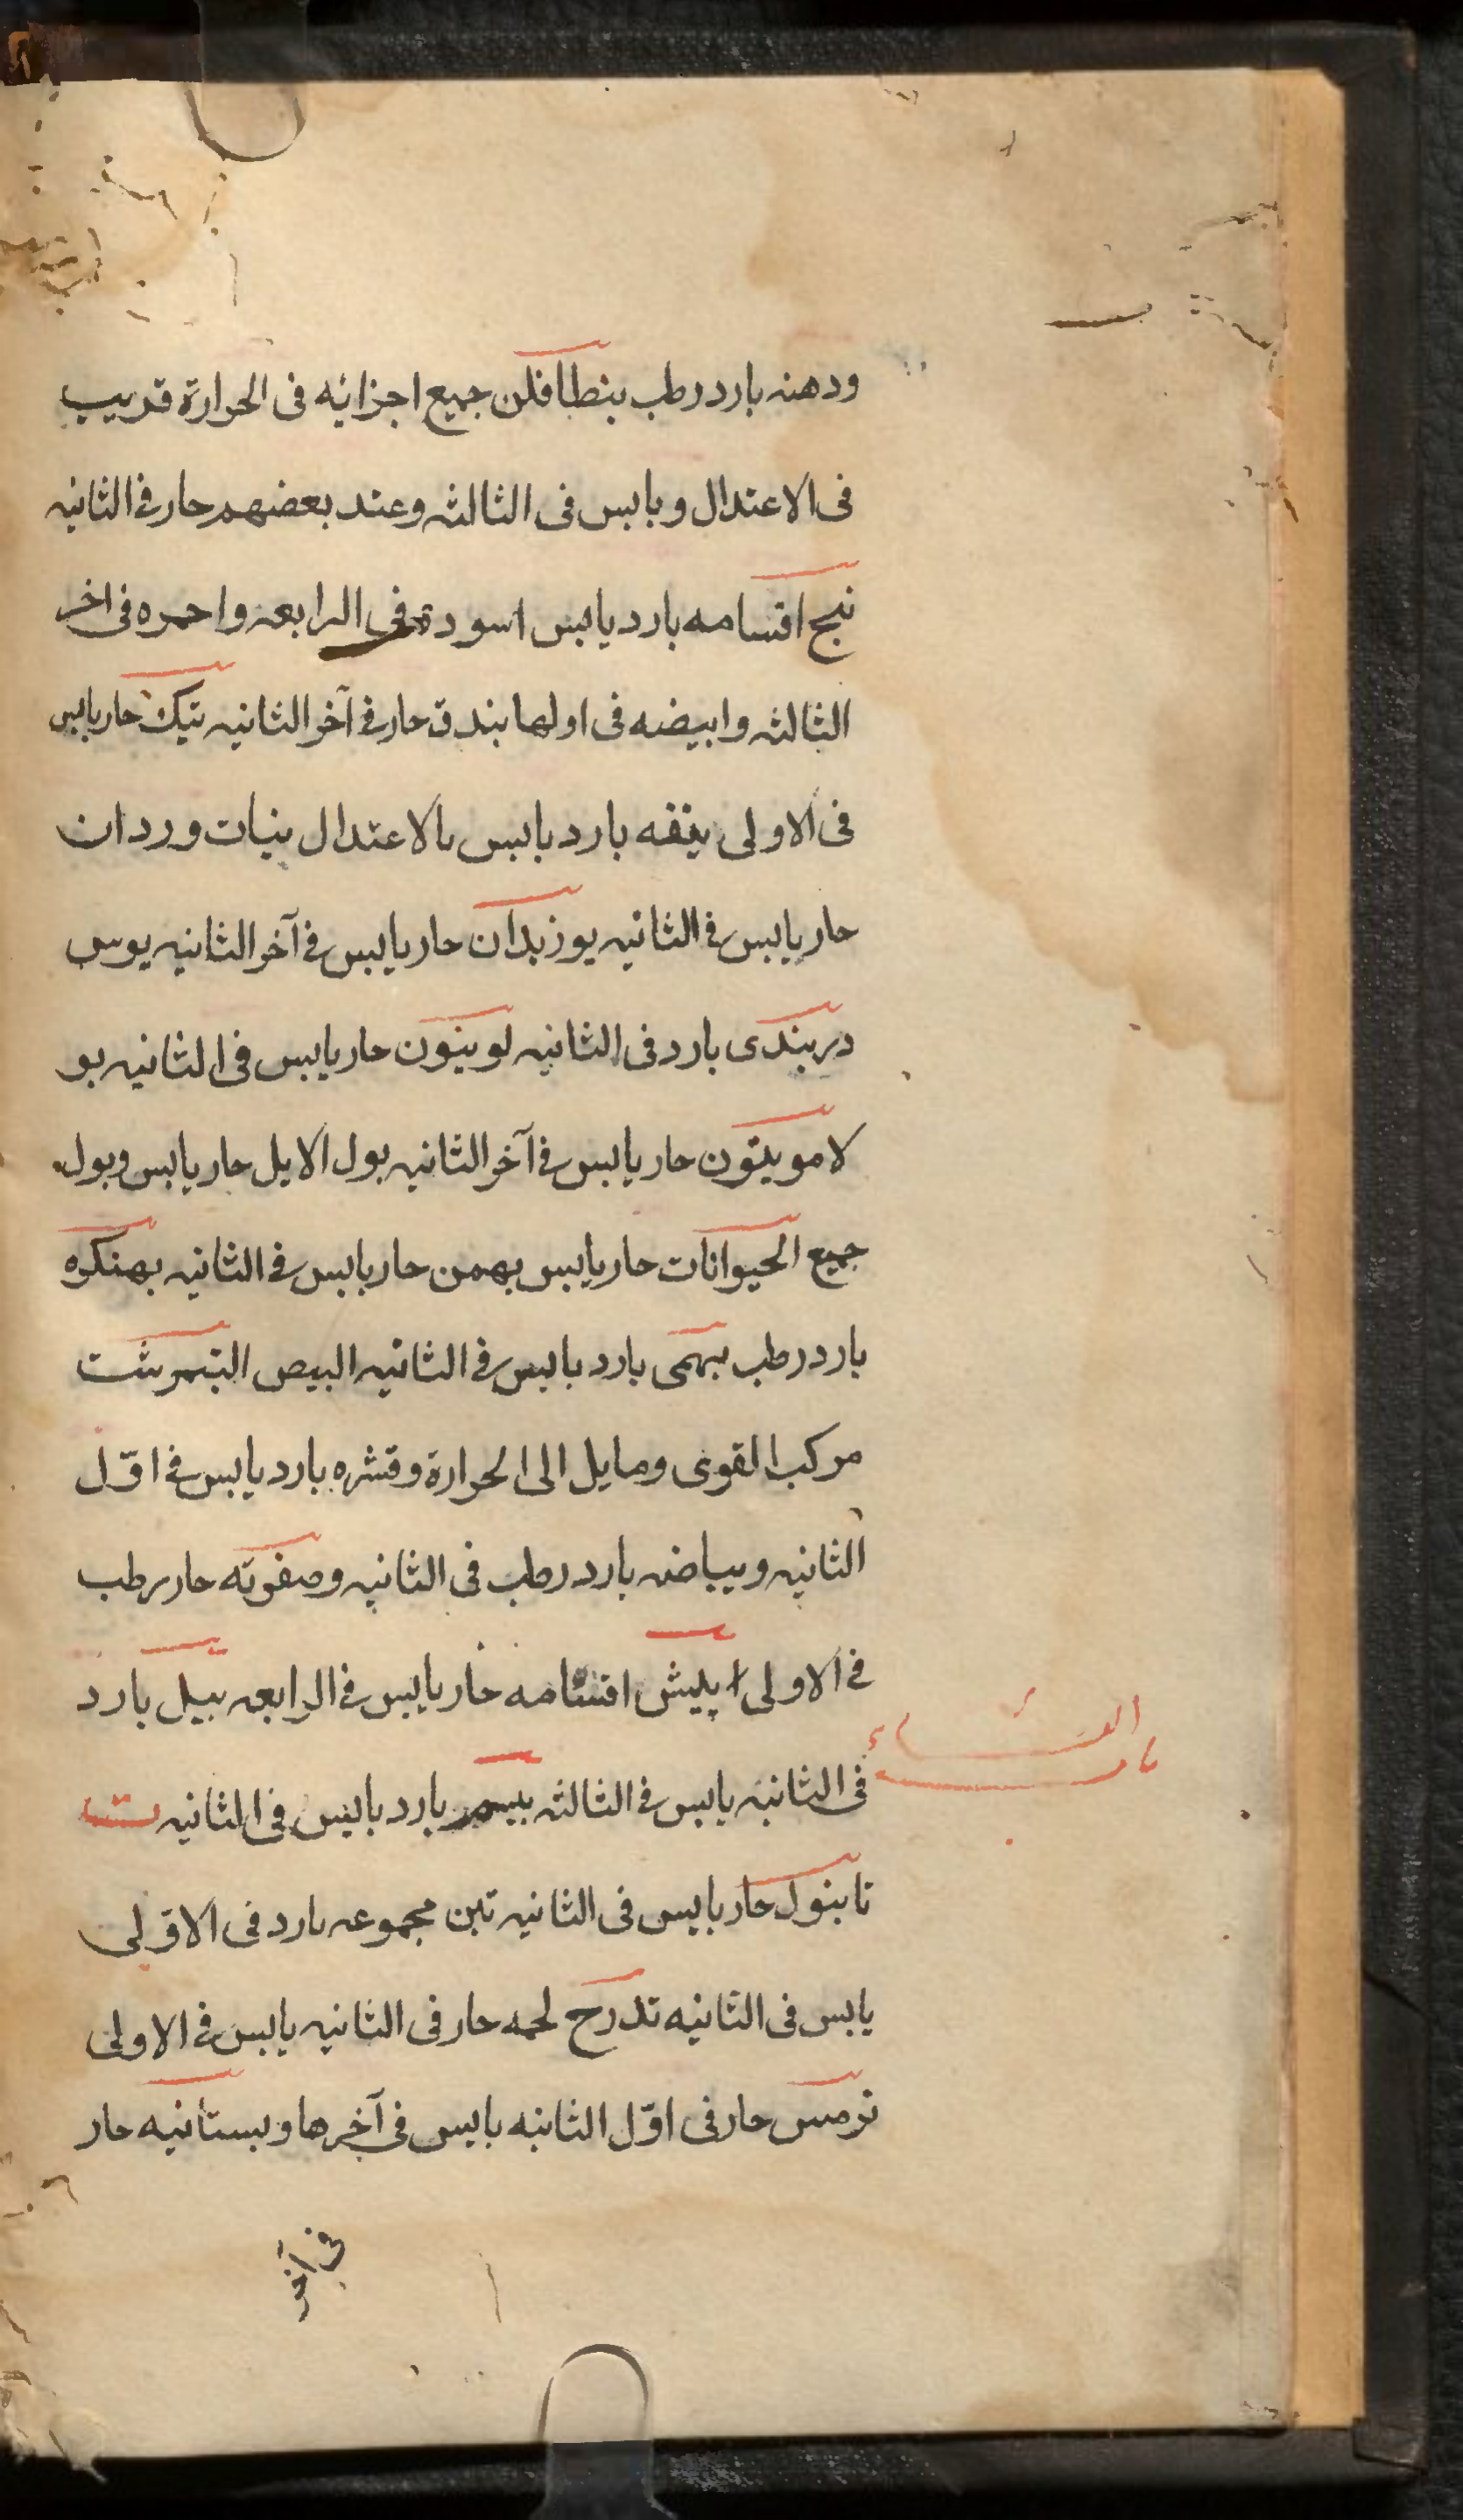 ودهنه بارد رطب بنطافلن جميع اجزائه فى الحرارة قريب
فى الاعتدال ويابس فى الثالثه وعند بعضهم حار فى الثانيه
بنج اقسامه بارد يابس اسوده فى الرابعه واحمره فى اخر
الثالثه وابيضه فى اولها بندق حار فى آخر الثانيه بنك حار يابس
فى الاولى بارد يابس بالاعتدال بنات وردان
حار يابس فى الثانيه بوزيدان حار يابس فى آخر الثانيه بوس
دربندى بارد فى الثانيه لوينون حار يابس فى الثانيه بو
لامويتون حار يابس فى آخر الثانيه بول الايل حار يابس وبول
جميع الحيوانات حار يابس بهمن حار يابس فى الثانيه بهنكره
بارد رطب بهمى بارد يابس فى الثانيه البيص النيمرشت
مركب القوى ومايل الى الحرارة وقشره بارد يابس فى اوّل
الثانيه وبياضه بارد رطب فى الثانيه وصفرته حار رطب
فى الاولى بيش اقسامه حار يابس فى الرابعه بيل بارد
فى الثانيه يابس فى الثالثه بارد يابس فى الثانيه ت
التاء
باب
تابنول حار يابس فى الثانيه تين مجموعه بارد فى الاوّلى
يابس فى الثانيه تدرج لحمه حار فى الثانيه يابس فى الاولى
ترمس حار فى اوّل الثانيه يابس فى آخرها وبستانيه حار
فى آخر